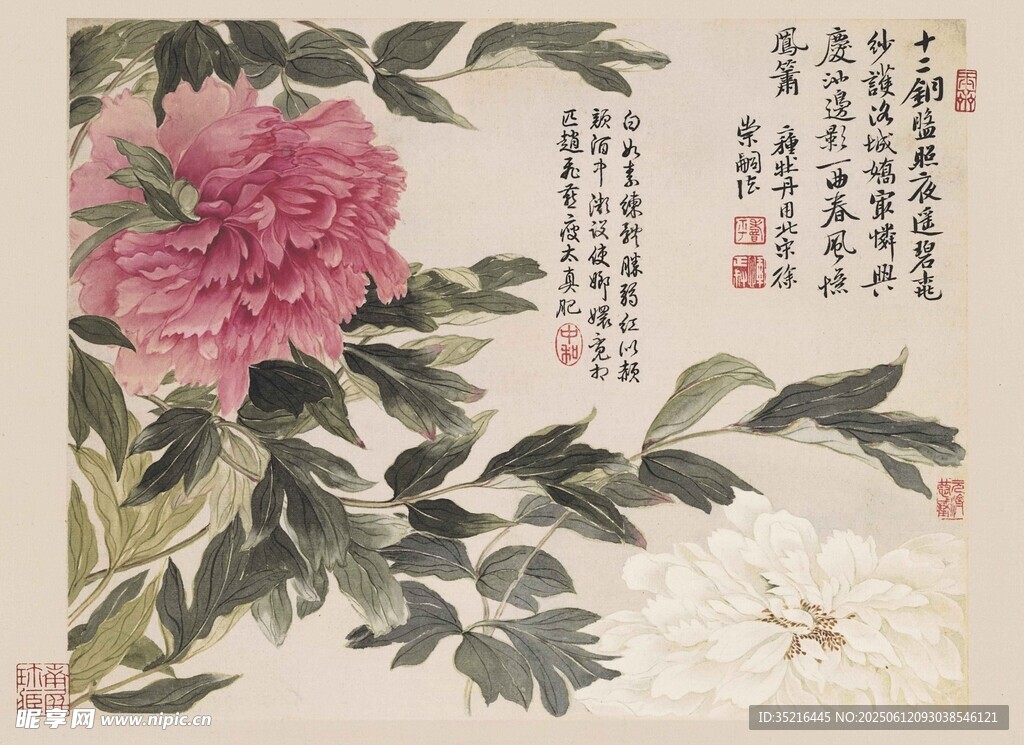 十二銅盤照夜遥碧桃
紗護洛城嬌最憐興
慶池邊影一曲春風憶
鳳簫
種牡丹用北宋徐
崇嗣法
白如素練勝紅以頳
顏酒半潮設使娜嬛竟相
匹趙飛燕瘦太真肥
中和
昵享网 www.nipic.cn
ID:35216445 NO:20250612093038546121